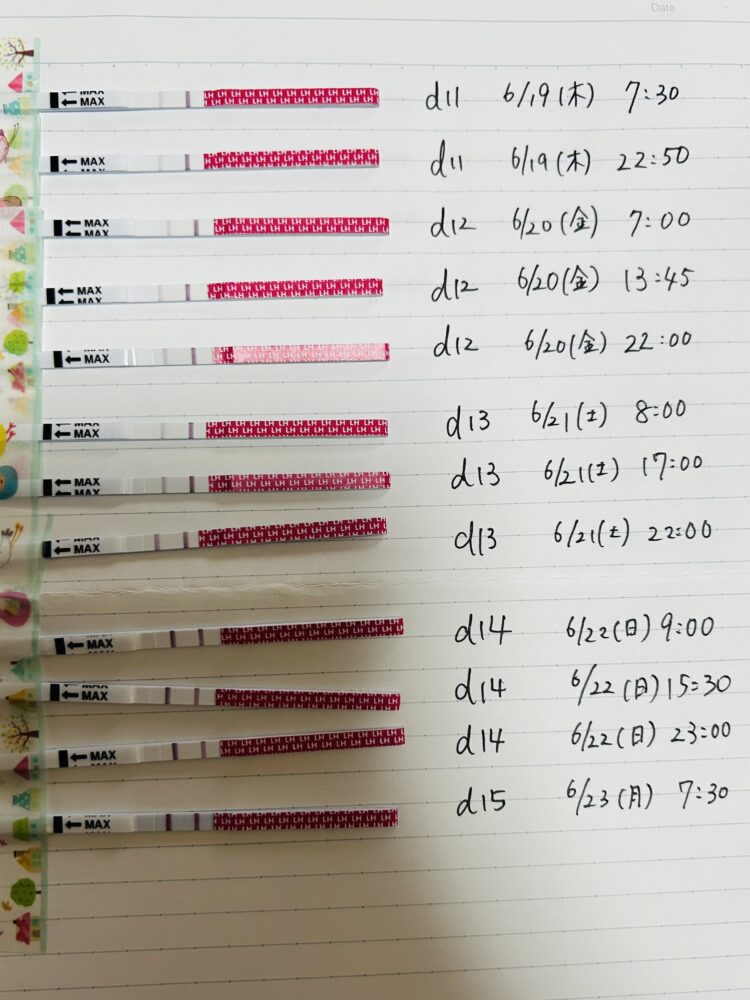 Date
MAX LH LH LH LH LH LH LH LH LH LH LH d11 6/19(木) 7:30
MAX LH LH LH LH LH LH LH LH LH LH LH d11 6/19(木) 22:50
MAX LH LH LH LH LH LH LH LH LH LH LH d12 6/20(金) 7:00
MAX LH LH LH LH LH LH LH LH LH LH LH d12 6/20(金) 13:45
MAX d12 6/20(金) 22:00
MAX LH LH LH LH LH LH LH LH LH LH LH d13 6/21(土) 8:00
MAX LH LH LH LH LH LH LH LH LH LH LH d13 6/21(土) 17:00
MAX LH LH LH LH LH LH LH LH LH LH LH d13 6/21(土) 22:00
MAX LH LH LH LH LH LH LH LH LH LH LH d14 6/22(日) 9:00
MAX LH LH LH LH LH LH LH LH LH LH LH d14 6/22(日) 15:30
MAX LH LH LH LH LH LH LH LH LH LH LH d14 6/22(日) 23:00
MAX LH LH LH LH LH LH LH LH LH LH LH d15 6/23(月) 7:30